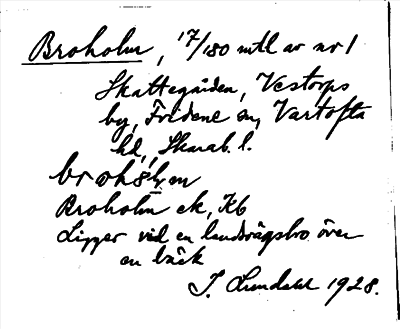 Broholm, 17/180 mtl av nr 1
Skattegården, Vestorps
by, Fridene sn, Vartofta
hd, Skarab. l.
Broholm ek, Kb
Ligger vid en landsvägsbro över
en bäck
I. Lundahl 1928.